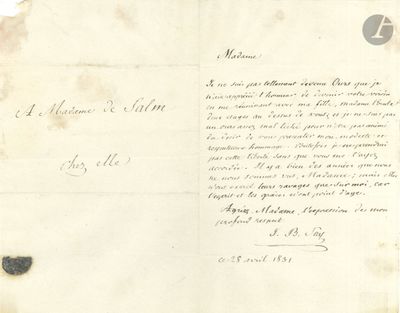 A Madame de Salm
chez elle
Madame
Je ne suis pas tellement devenu Ours que je
n'aie apprécié l'honneur de devenir votre voisin
en me réunissant avec ma fille, madame
deux étages au dessus de vous; et je ne suis pas
un ours assez mal léché pour n'être pas animé
du désir de vous présenter mon modeste et
respectueux hommage. Toutefois je ne prendrai
pas cette liberté sans que vous me l'ayez
accordée. Il y a bien des années que nous
ne nous sommes vus, Madame; mais elles
n'ont exercé leurs ravages que sur moi, car
l'esprit et les graces n'ont point d'age.
Agréez, Madame l'expression de mon
profond respect
J. B. Say
ce 28 avril 1831.